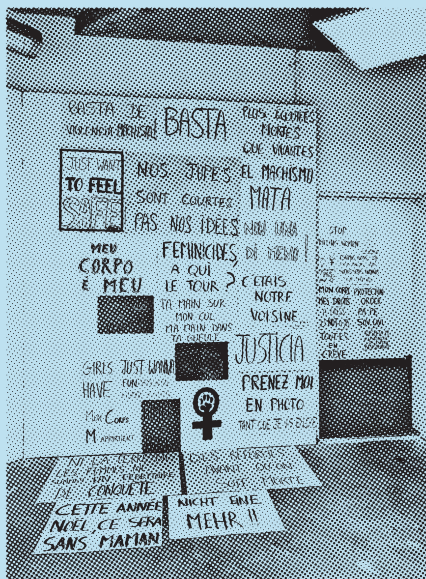 BASTA DE
VIOLENCIA MACHISTA!
BASTA
PLUS ÉCOUTÉES
MORTES
QUE VIVANTES
JUST WANT
TO FEEL
SAFE
NOS JUPES
SONT COURTES
PAS NOS IDÉES
EL MACHISMO
MATA
NON UNA
DI MENO
MEU
CORPO
É MEU
FEMINICIDES,
A QUI
LE TOUR ?
C'ÉTAIS
NOTRE
VOISINE
TA MAIN SUR
MON CUL
MA MAIN DANS
TA GUEULE
JUSTICIA
GIRLS JUST WANNA
HAVE
MON CORPS
M'APPARTIENT
PRENEZ MOI
EN PHOTO
TANT QUE JE VIS
STOP
MON CORPS
MES DROITS
PROTECTION
ORDER
TOUTES
EN
GRÈVE
LES FEMMES NE
DE CONQUÊTE
AVANT QU'ON
SOIT MORTE
CETTE ANNÉE
NOËL, CE SERA
SANS MAMAN
NICHT EINE
MEHR !!